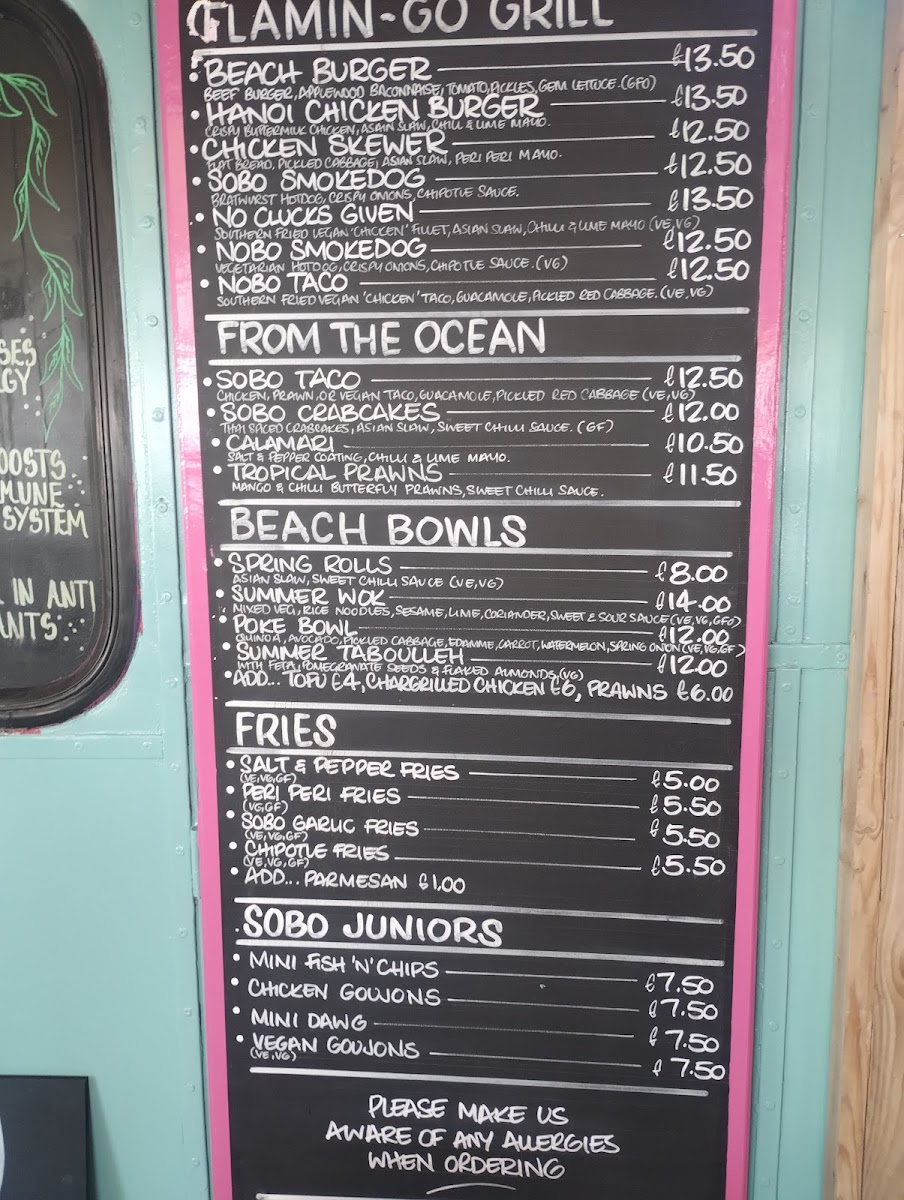 SES
GY
OOSTS
MUNE
SYSTEM
IN ANTI
ANTS
FLAMIN-GO GRILL
• BEACH BURGER £13.50
BEEF BURGER, APPLEWOOD BACONNAISE, TOMATO, PICKLES, GEM LETTUCE. (GFO)
• HANOI CHICKEN BURGER £13.50
CRISPY BUTTERMILK CHICKEN, ASAIN SLAW, CHILL & LIME MAYO.
• CHICKEN SKEWER £12.50
FLAT BREAD, PICKLED CABBAGE, ASIAN SLAW, PERI PERI MAYO.
• SOBO SMOKEDOG £12.50
BRATWURST HOTDOG, CRISPY ONIONS, CHIPOTLE SAUCE.
• NO CLUCKS GIVEN £13.50
SOUTHERN FRIED VEGAN 'CHICKEN' FILLET, ASIAN SLAW, CHILLI & LIME MAYO (VE, VG)
• NOBO SMOKEDOG £12.50
VEGETARIAN HOTDOG, CRISPY ONIONS, CHIPOTLE SAUCE. (VG)
• NOBO TACO £12.50
SOUTHERN FRIED VEGAN 'CHICKEN' TACO, GUACAMOLE, PICKLED RED CABBAGE. (VE, VG)
FROM THE OCEAN
• SOBO TACO £12.50
CHICKEN, PRAWN, OR VEGAN TACO, GUACAMOLE, PICKLED RED CABBAGE (VE, VG)
• SOBO CRABCAKES £12.00
THAI SPICED CRABCAKES, ASIAN SLAW, SWEET CHILLI SAUCE. (GF)
• CALAMARI £10.50
SALT & PEPPER COATING, CHILLI & LIME MAYO.
• TROPICAL PRAWNS £11.50
MANGO & CHILLI BUTTERFLY PRAWNS, SWEET CHILLI SAUCE.
BEACH BOWLS
• SPRING ROLLS £8.00
ASIAN SLAW, SWEET CHILLI SAUCE (VE, VG)
• SUMMER WOK £14.00
MIXED VEG, RICE NOODLES, SESAME, LIME, CORIANDER, SWEET & SOUR SAUCE (VE, VG, GFO)
• POKE BOWL £12.00
QUINOA, AVOCADO, PICKLED CABBAGE, EDAMME, CARROT, WATERMELON, SPRING ONION (VE, VG, GF)
• SUMMER TABOULLEH £12.00
WITH FETA, POMEGRANATE SEEDS & FLAKED ALMONDS (VG)
• ADD... TOFU £4, CHARGRILLED CHICKEN £6, PRAWNS £6.00
FRIES
• SALT & PEPPER FRIES £5.00
(VE, VG, GF)
• PERI PERI FRIES £5.50
(VG, GF)
• SOBO GARLIC FRIES £5.50
(VE, VG, GF)
• CHIPOTLE FRIES £5.50
(VE, VG, GF)
• ADD... PARMESAN £1.00
SOBO JUNIORS
• MINI FISH 'N' CHIPS £7.50
• CHICKEN GOUJONS £7.50
• MINI DAWG £7.50
• VEGAN GOUJONS £7.50
(VE, VG)
PLEASE MAKE US
AWARE OF ANY ALLERGIES
WHEN ORDERING